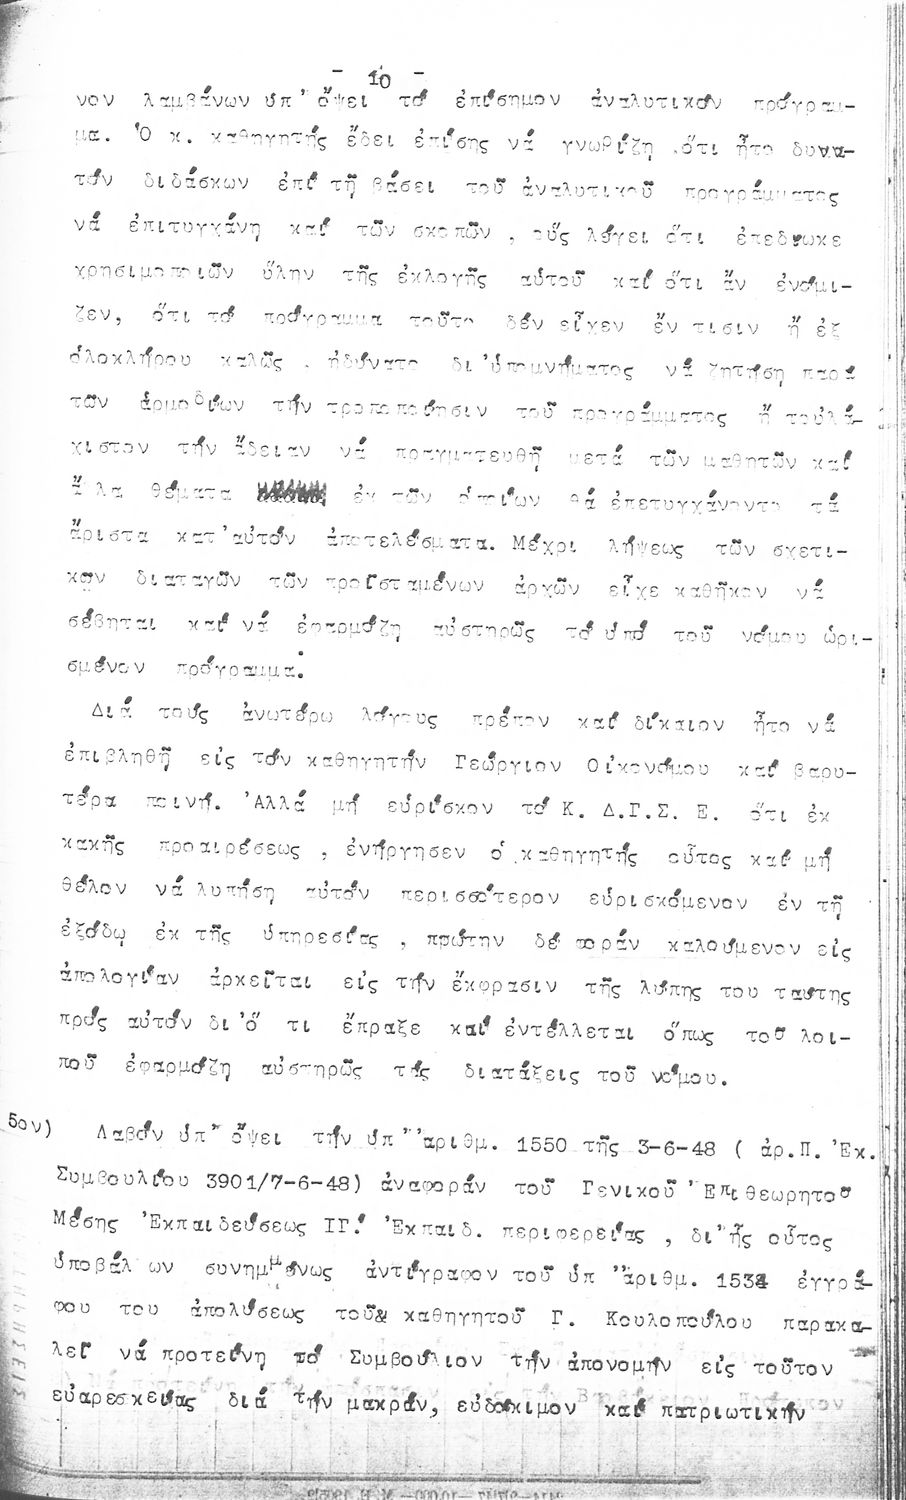 - 10 -
νον λαμβάνων ὑπ' ὄψει τό ἐπίσημον ἀναλυτικόν πρόγραμ-
μα. Ὁ κ. καθηγητής ἔδει ἐπίσης νά γνωρίζῃ ὅτι ἦτο δυνα-
τόν διδάσκων ἐπί τῇ βάσει τοῦ ἀναλυτικοῦ προγράμματος
νά ἐπιτυγχάνῃ καί τῶν σκοπῶν , οὕς λέγει ὅτι ἐπεδίωκε
χρησιμοποιῶν ὕλην τῆς ἐκλογῆς αὐτοῦ καί ὅτι ἄν ἐνόμι-
ζεν, ὅτι τό πρόγραμμα τοῦτο δέν εἶχεν ἔν τισιν ἤ ἐξ
ὁλοκλήρου καλῶς , ἠδύνατο δι'ὑπομνήματος νά ζητήσῃ παρά
τῶν ἁρμοδίων τήν τροποποίησιν τοῦ προγράμματος ἤ τοὐλά-
χιστον τήν ἄδειαν νά πραγματευθῇ μετά τῶν μαθητῶν καί
ἄλλα θέματα ἐκ τῶν ὁποίων θά ἐπετυγχάνοντο τά
ἄριστα κατ'αὐτόν ἀποτελέσματα. Μέχρι λήψεως τῶν σχετι-
κῶν διαταγῶν τῶν προϊσταμένων ἀρχῶν εἶχε καθῆκον νά
σέβηται καί νά ἐφαρμόζῃ αὐστηρῶς τό ὑπό τοῦ νόμου ὡρι-
σμένον πρόγραμμα.
Διά τούς ἀνωτέρω λόγους πρέπον καί δίκαιον ἦτο νά
ἐπιβληθῇ εἰς τόν καθηγητήν Γεώργιον Οἰκονόμου καί βαρυ-
τέρα ποινή. Ἀλλά μή εὑρίσκον τό Κ. Δ.Γ.Σ. Ε. ὅτι ἐκ
κακῆς προαιρέσεως , ἐνήργησεν ὁ καθηγητής οὗτος καί μή
θέλον νά λυπήσῃ αὐτόν περισσότερον εὑρισκόμενον ἐν τῇ
ἐξόδῳ ἐκ τῆς ὑπηρεσίας , πρώτην δέ φοράν καλούμενον εἰς
ἀπολογίαν ἀρκεῖται εἰς τήν ἔκφρασιν τῆς λύπης του ταύτης
πρός αὐτόν δι'ὅ τι ἔπραξε καί ἐντέλλεται ὅπως τοῦ λοι-
ποῦ ἐφαρμόζῃ αὐστηρῶς τάς διατάξεις τοῦ νόμου.
5ον) Λαβόν ὑπ' ὄψει τήν ὑπ' ἀριθμ. 1550 τῆς 3-6-48 ( ἀρ.Π. Ἐκ.
Συμβουλίου 3901/7-6-48) ἀναφοράν τοῦ Γενικοῦ Ἐπιθεωρητοῦ
Μέσης Ἐκπαιδεύσεως ΙΓ' Ἐκπαιδ. περιφερείας , δι' ἧς οὗτος
ὑποβάλ ων συνημμένως ἀντίγραφον τοῦ ὑπ' ἄριθμ. 1534 ἐγγρά-
φου του ἀπολύσεως τοῦ καθηγητοῦ Γ. Κουλοπούλου παρακα-
λεῖ νά προτείνῃ τό Συμβούλιον τήν ἀπονομήν εἰς τοῦτον
εὐαρεσκείας διά τήν μακράν, εὐδόκιμον καί πατριωτικήν